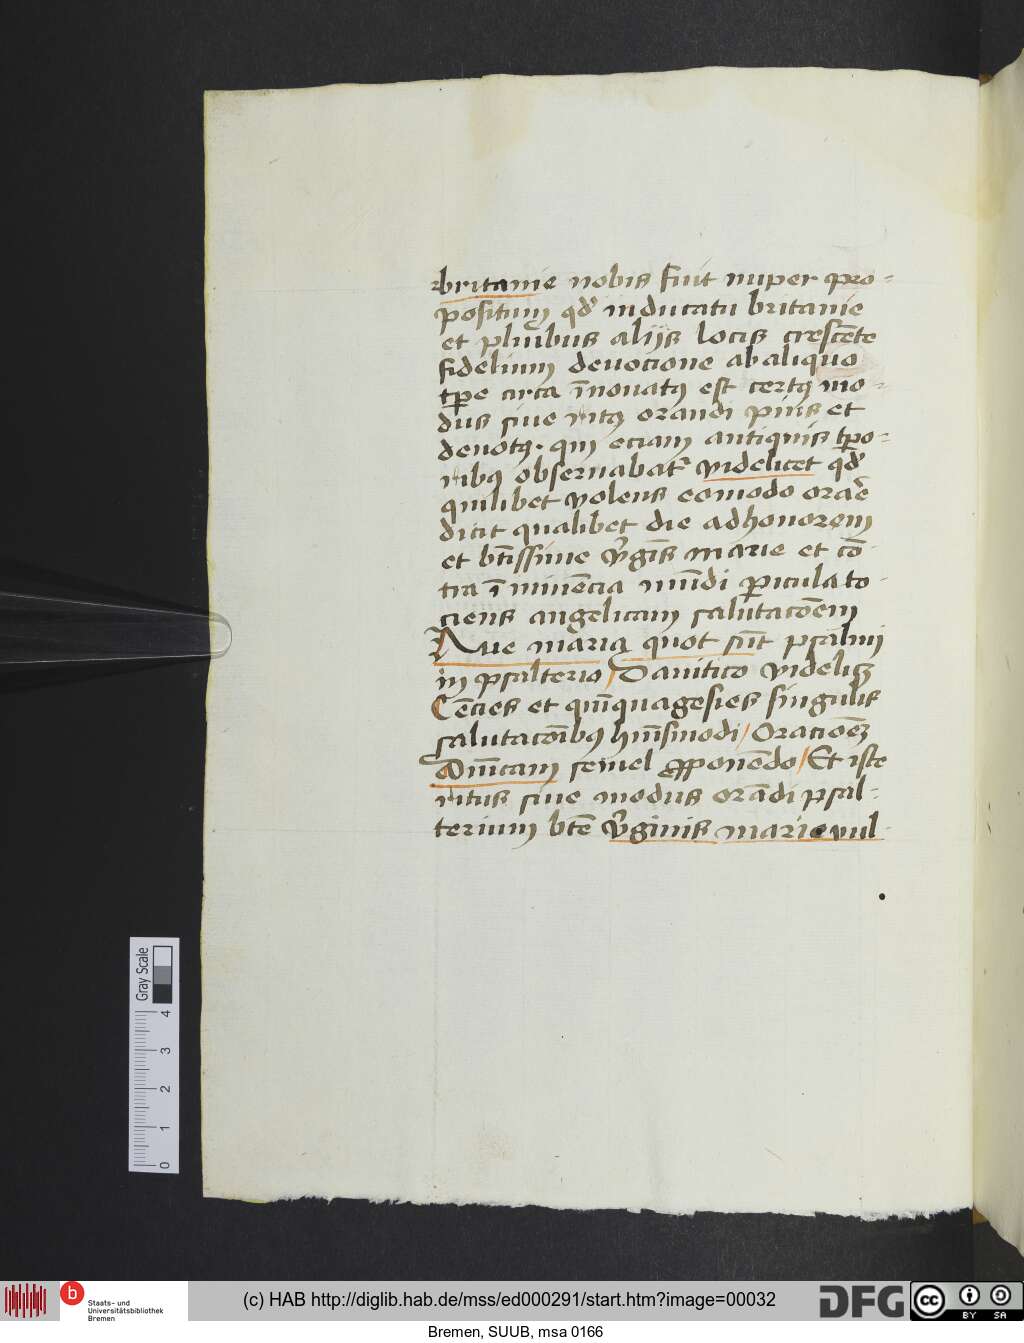 britanie nobis fuit nuper pro-
positum qd' in ducatu britanie
et pluribus alijs locis crescēte
fidelium deuocione ab aliquo
tpe circa īnouatꝰ est certꝰ mo-
dus siue ritꝰ orandi pius et
deuotꝰ. qui eciam antiquis tpo-
ribꝰ obseruabatr videlicet qd'
quilibet volens eo modo orar̄e
dicit qualibet die ad honorem
et btīssime v̄gīs marie et cō-
tra īminēcia mūdi pericula to-
ciens angelicam salutacōem
Aue maria quot sūt psalmi
in psalterio / Dauitico videlicꝫ
Cēcies et quīquagesies singulis
salutacōibꝰ hui᷒smodi / Oracionēꝫ
Dnīcam semel p̄ponēdo / Et iste
ritus siue modus orādi psal-
terium btē v̄ginis marie vul-
Gray Scale
0 1 2 3 4
Staats- und
Universitätsbibliothek
Bremen
(c) HAB http://diglib.hab.de/mss/ed000291/start.htm?image=00032
DFG
cc BY SA
Bremen, SUUB, msa 0166